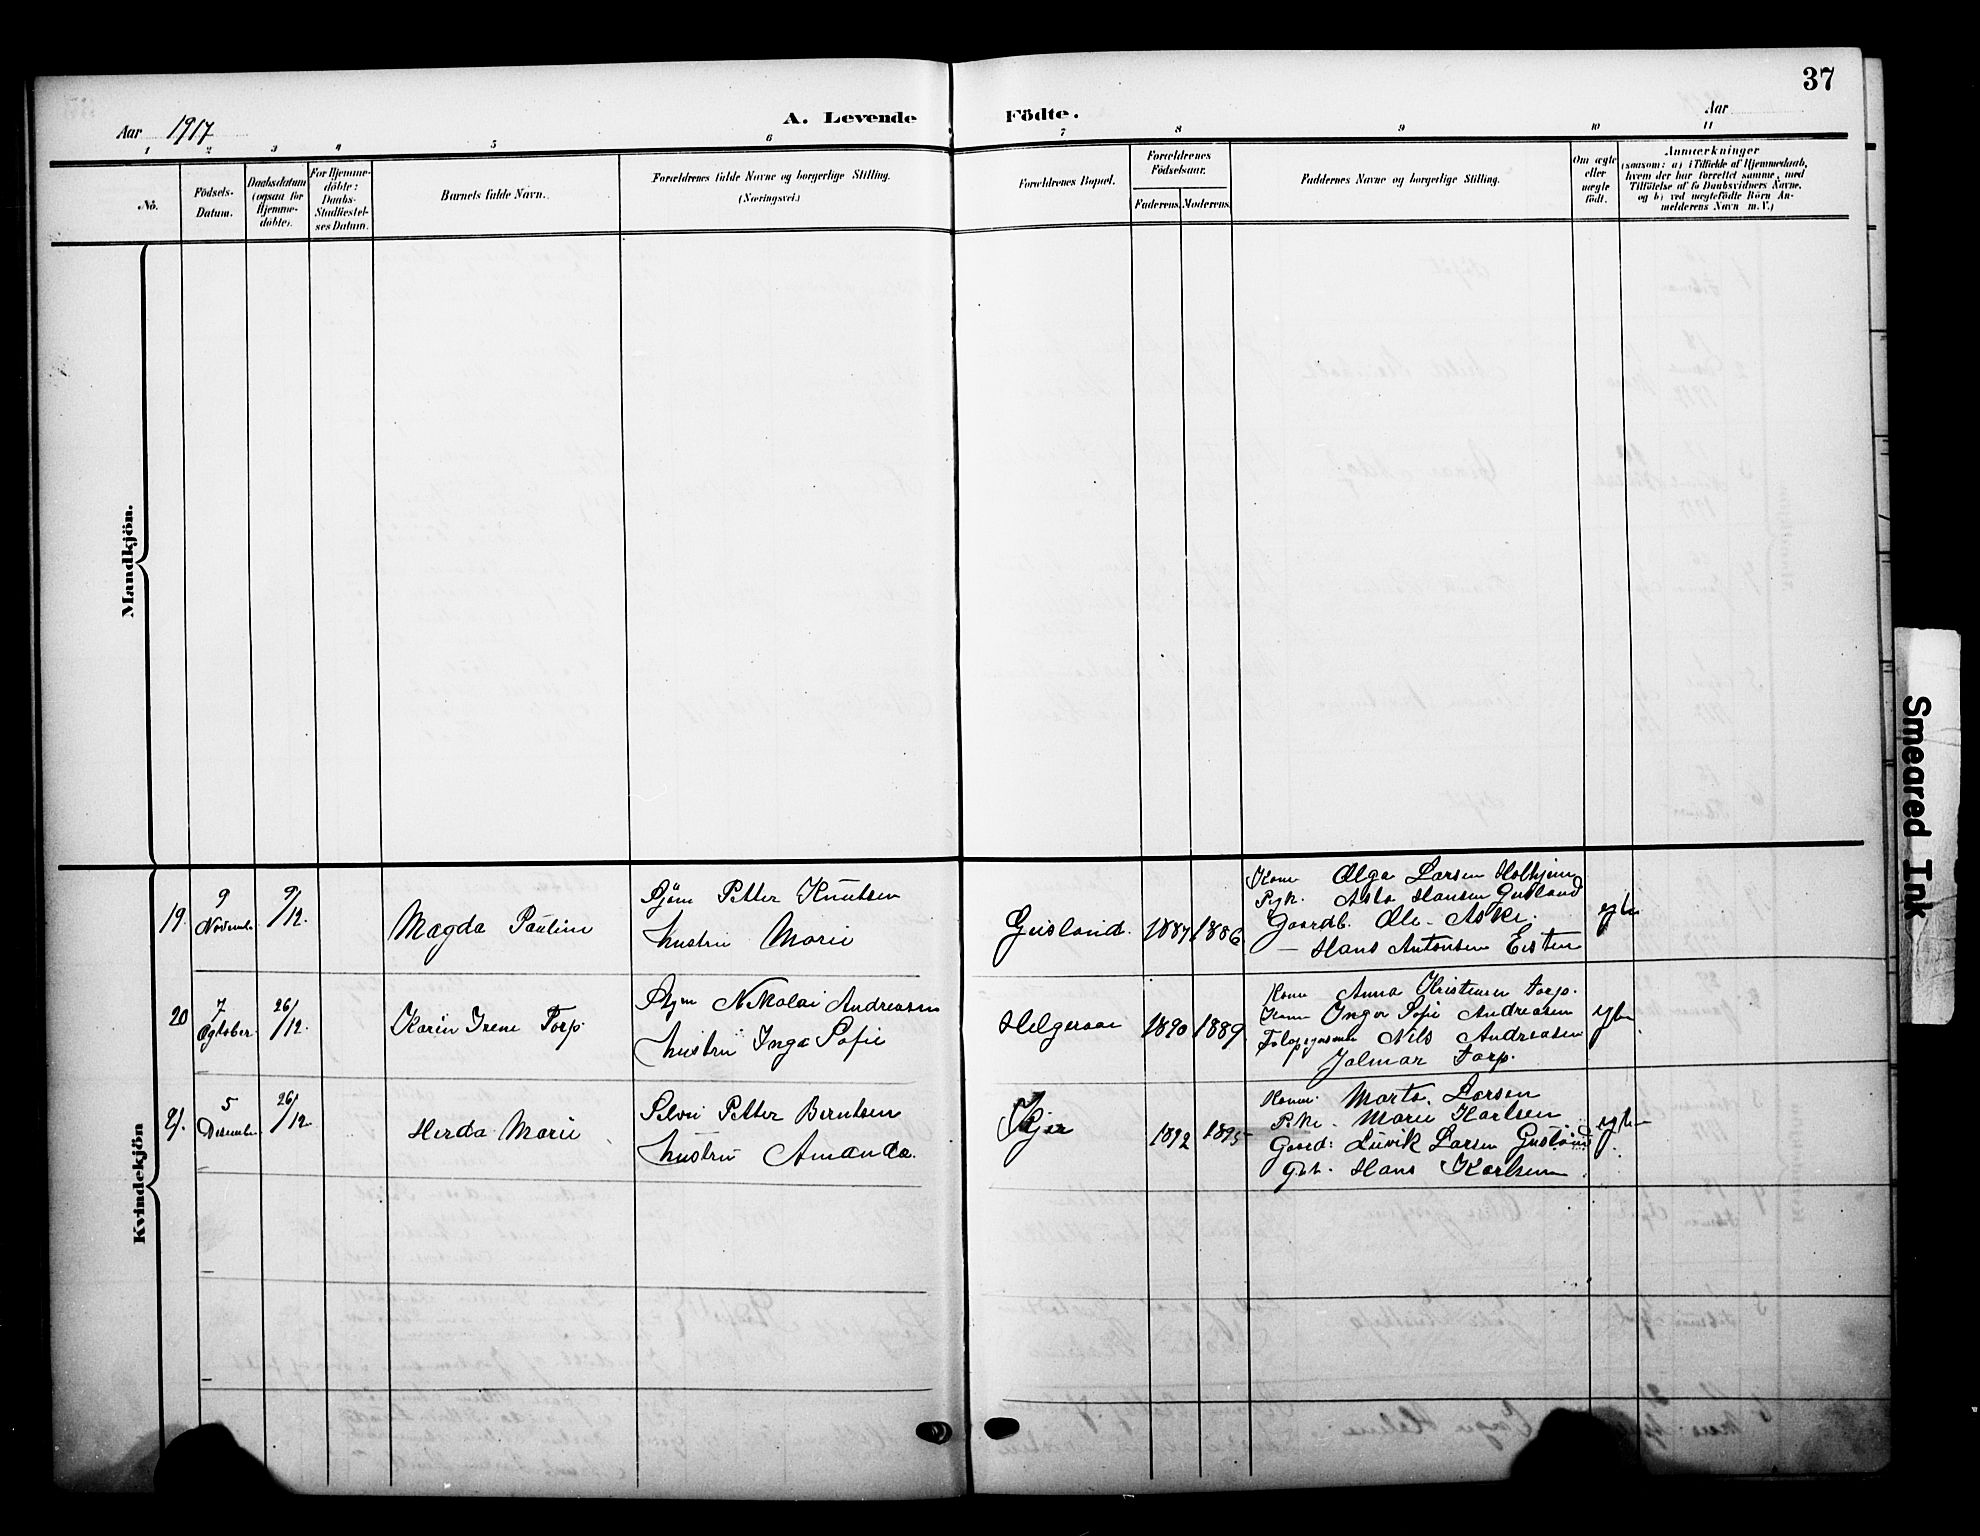 37
Aar 1917
A. Levende
Födte.
Aar
1 2 3 4 5 6 7 8 9 10 11
No.
Födsels-
Datum.
Daabsdatum
(ogsaa for
Hjemme-
döbte).
For Hjemme-
döbte:
Daabs-
Stadfæstel-
ses Datum.
Barnets fulde Navn.
Forældrenes fulde Navne og borgerlige Stilling.
(Næringsvei.)
Forældrenes Bopæl.
Forældrenes
Födselsaar.
Faderens. Moderens.
Faddernes Navne og borgerlige Stilling.
Om ægte
eller
uægte
födt.
Anmærkninger
(saasom: a) i Tilfælde af Hjemmedaab,
hvem der har forrettet samme, med
Tilföielse af to Daabsvidners Navne,
og b) ved uægtefödte Börn An-
melderens Navn m. V.)
Mandkjön.
Kvindekjön
19.
9
Novemb.
9/12.
Magda Pauline
Petter Knutsen
hustru Marie
Gusland.
1887
1886
Kone Olga Larsen Holhjem
Pyk. Asta Hansen Gusland
Gaardb. Ole Aske.
— Hans Antonsen Eisten
egte
20
7
Ogtober
26/12.
Karin Irene Torp.
Nikolai Andreasen
hustru Inga Sofie
Helgeroa
1890
1889.
Kone Anna Kristensen Torp.
Kone Inger Sofie Andreasen
Nils Andreasen
Jalmar Torp.
egte
21.
5
Desember
26/12
Herda Marie
Petter Berntsen
hustru Amanda.
1892
1895
Kone. Marta Larsen
Pike. Marie Karlsen
Gaard: Luvik Larsen Gusland
Gbt. Hans Karlsen
egte
Smeared Ink